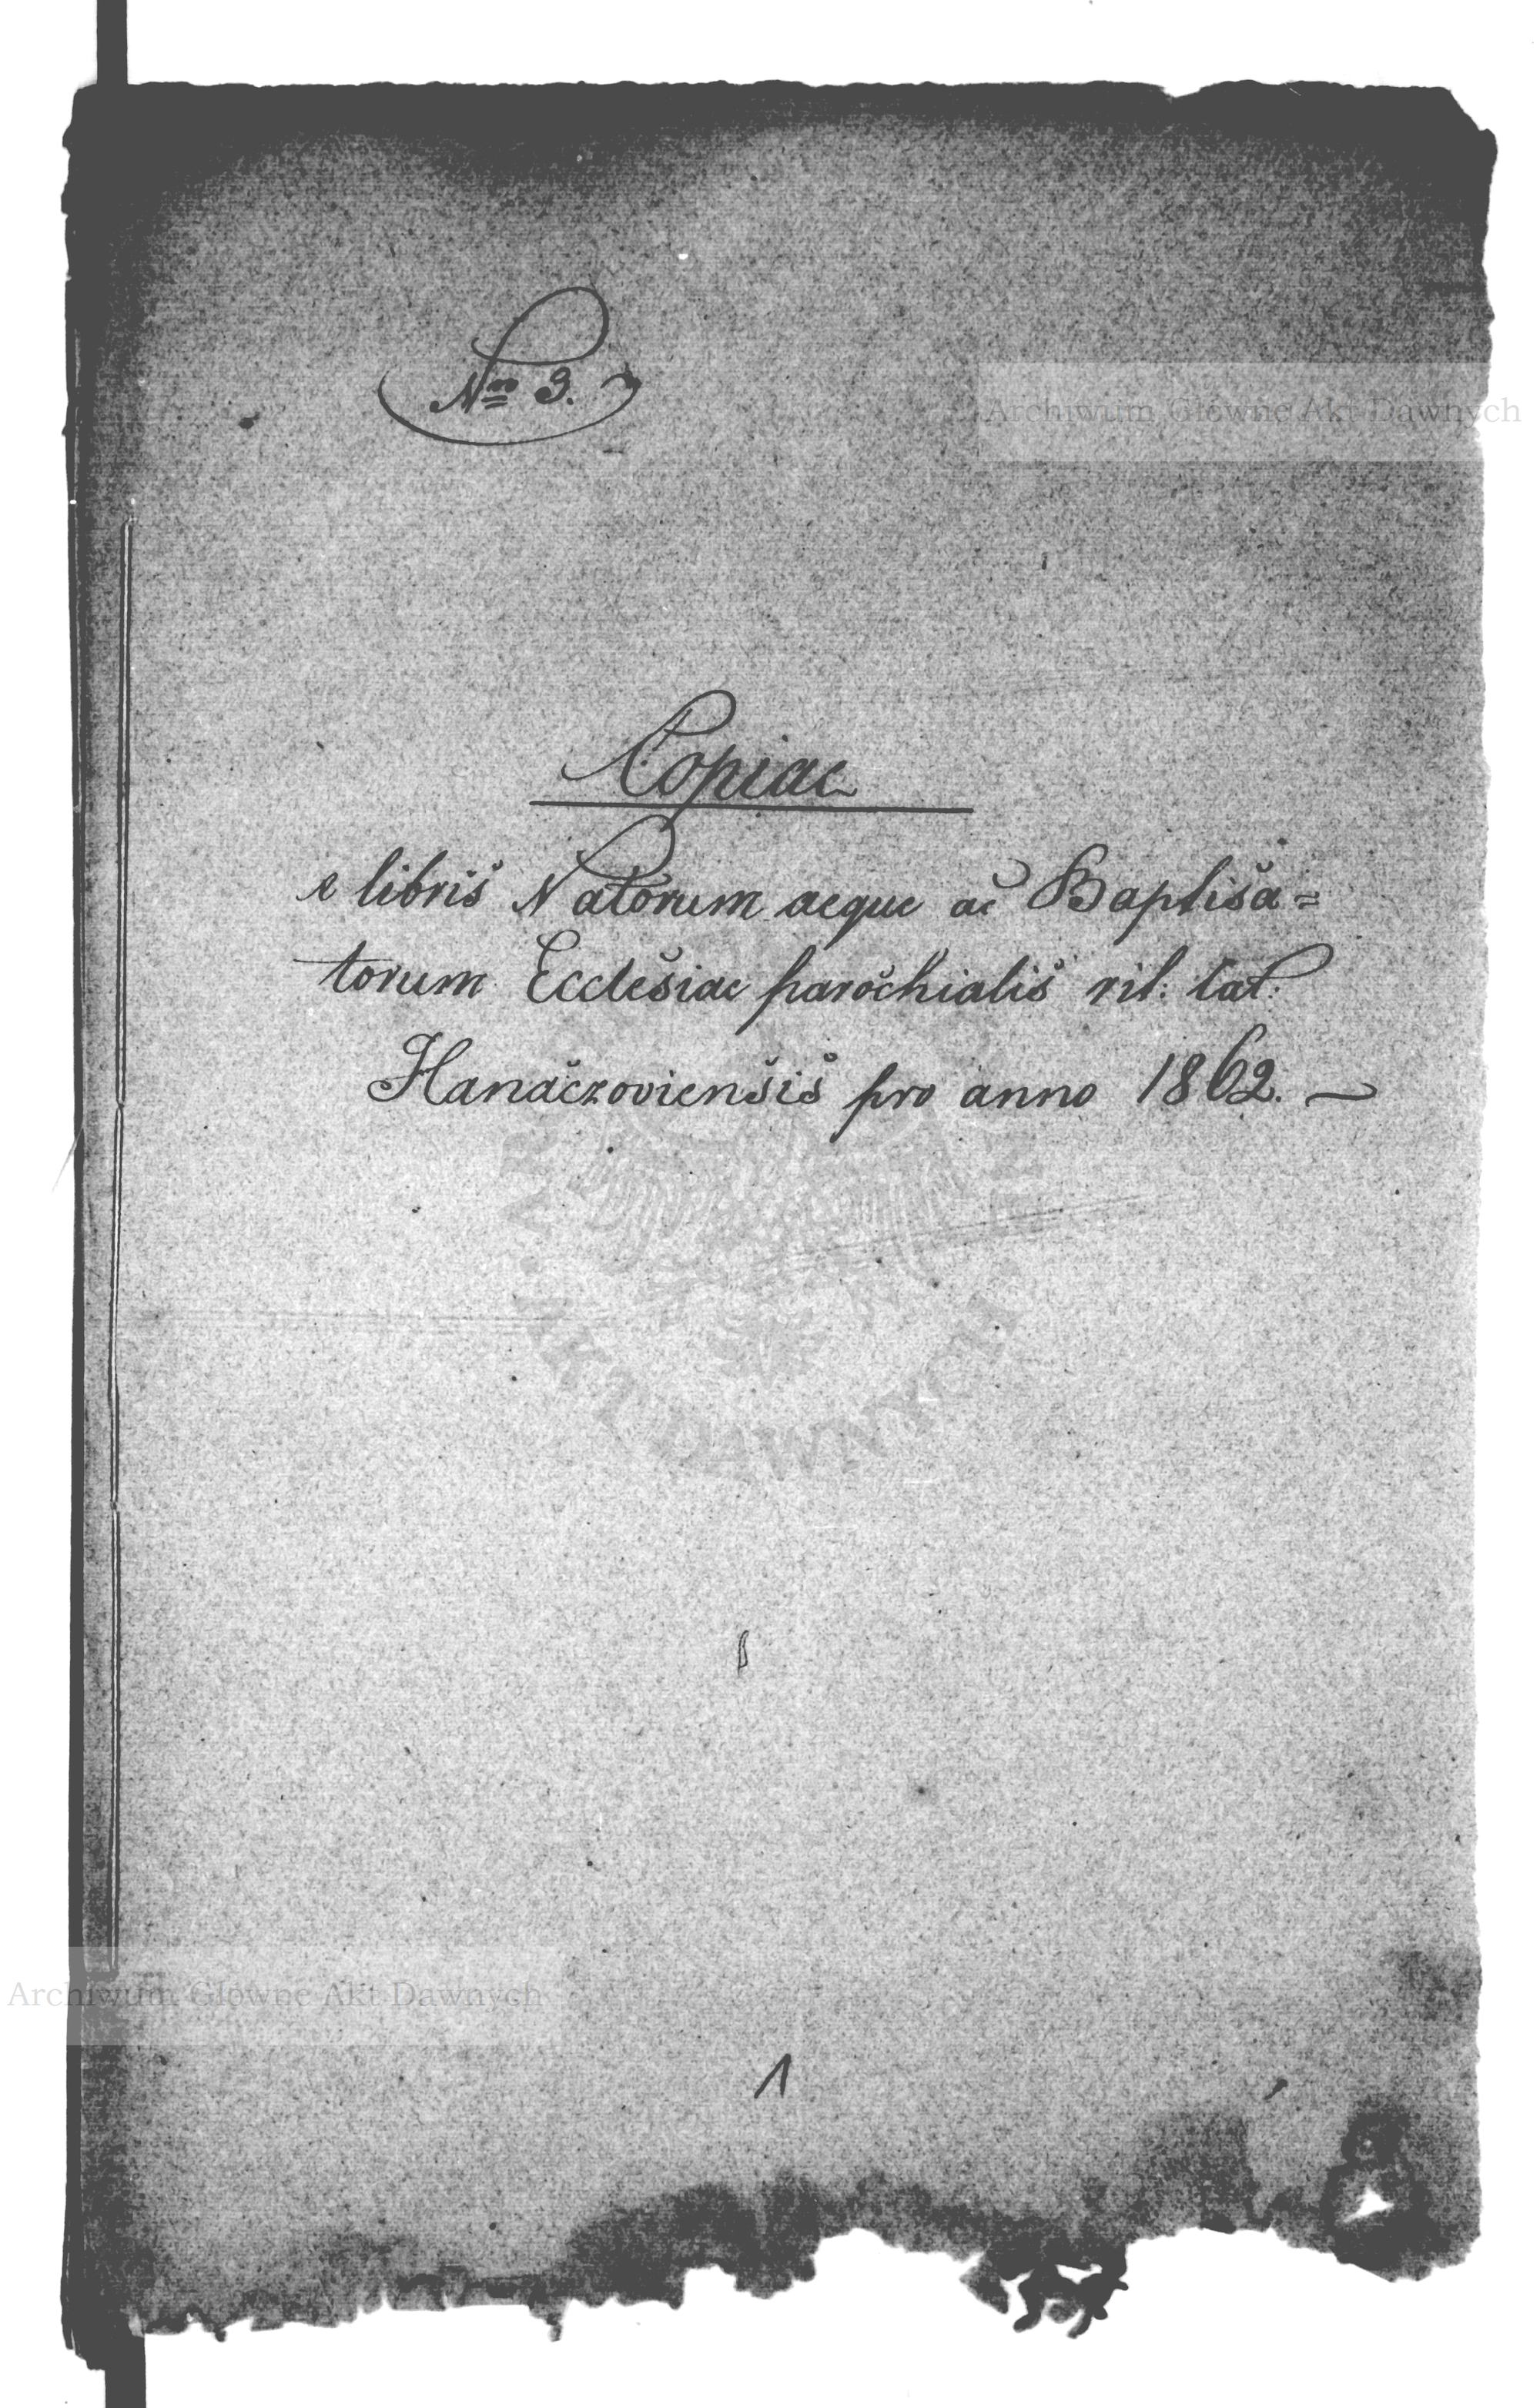 Nro 3.
Archiwum Główne Akt Dawnych
Copiae
e libris Natorum aeque ac Baptisa=
torum Ecclesiae parochialis rit: lat:
Hanaczoviensis pro anno 1862.
AKT DAWNYCH
Archiwum Główne Akt Dawnych
1